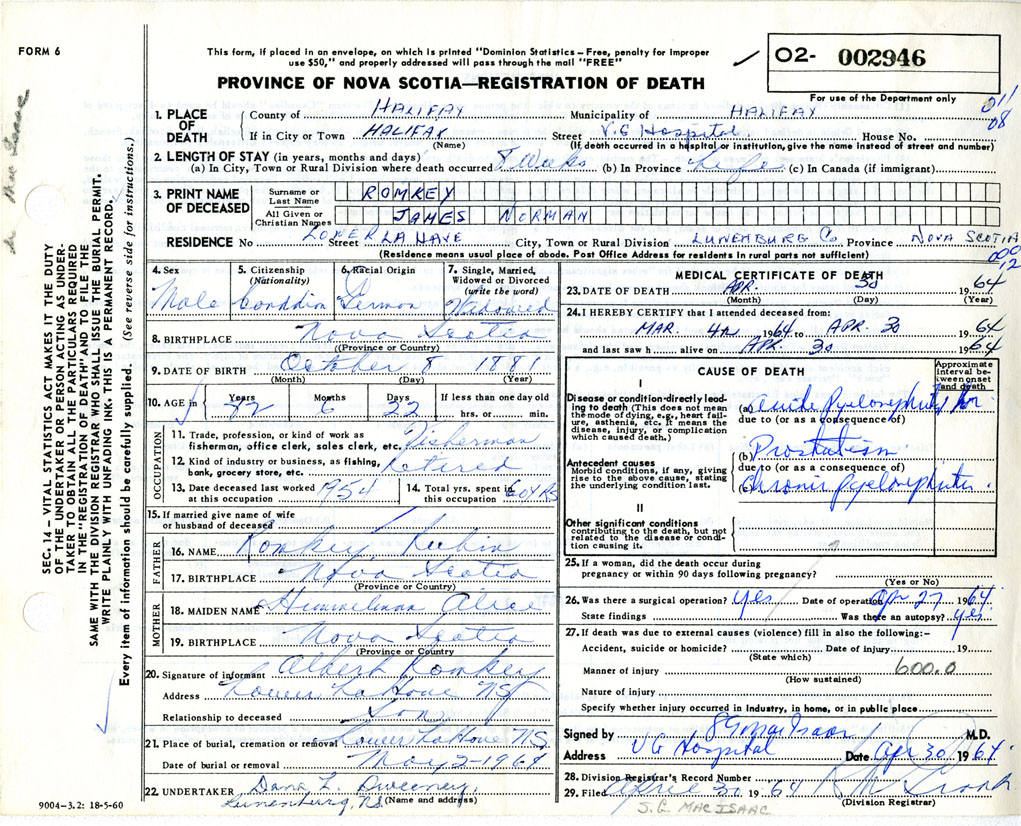 FORM 6
This form, if placed in an envelope, on which is printed "Dominion Statistics – Free, penalty for improper
use $50," and properly addressed will pass through the mail "FREE"
PROVINCE OF NOVA SCOTIA—REGISTRATION OF DEATH
O2- 002946
For use of the Department only
011
08
1. PLACE OF DEATH
County of HALIFAX Municipality of HALIFAX
If in City or Town HALIFAX Street V.G Hospital House No.
(Name) (If death occurred in a hospital or institution, give the name instead of street and number)
2. LENGTH OF STAY (in years, months and days)
(a) In City, Town or Rural Division where death occurred 8 Weeks (b) In Province Life (c) In Canada (if immigrant)
3. PRINT NAME OF DECEASED
Surname or Last Name ROMKEY
All Given or Christian Names JAMES NORMAN
RESIDENCE No Street LOWER LA HAVE City, Town or Rural Division LUNENBURG Co. Province NOVA SCOTIA
(Residence means usual place of abode. Post Office Address for residents in rural parts not sufficient)
000
12
4. Sex Male
5. Citizenship (Nationality)
6. Racial Origin German
7. Single, Married, Widowed or Divorced (write the word) Widowed
8. BIRTHPLACE Nova Scotia
(Province or Country)
9. DATE OF BIRTH October 8 1881
(Month) (Day) (Year)
10. AGE in Years 82 Months 6 Days 22 If less than one day old hrs. or min.
OCCUPATION
11. Trade, profession, or kind of work as fisherman, office clerk, sales clerk, etc. Fisherman
12. Kind of industry or business, as fishing, bank, grocery store, etc. retired
13. Date deceased last worked at this occupation 1954
14. Total yrs. spent in this occupation 60 YRS
15. If married give name of wife or husband of deceased
FATHER
16. NAME Romkey Reubin
17. BIRTHPLACE Nova Scotia
(Province or Country)
MOTHER
18. MAIDEN NAME Himmelman Alice
19. BIRTHPLACE Nova Scotia
(Province or Country
20. Signature of informant Albert Romkey
Address Lower LaHave NS
Relationship to deceased Son
21. Place of burial, cremation or removal Lower LaHave NS
Date of burial or removal May 2-1964
22. UNDERTAKER Dana L. Sweeney,
Lunenburg, NS (Name and address)
9004—3.2: 18-5-60
MEDICAL CERTIFICATE OF DEATH
23. DATE OF DEATH APR. 30 1964
(Month) (Day) (Year)
24. I HEREBY CERTIFY that I attended deceased from:
MAR. 4th 1964 to APR. 30 1964
and last saw h alive on APR. 30 1964
CAUSE OF DEATH
Approximate interval between onset and death
I
Disease or condition directly leading to death (This does not mean the mode of dying, e.g., heart failure, asthenia, etc. It means the disease, injury, or complication which caused death.)
(a) acute Pyelonephritis
due to (or as a consequence of)
Antecedent causes
Morbid conditions, if any, giving rise to the above cause, stating the underlying condition last.
(b) Prostatism
due to (or as a consequence of)
(c) Chronic Pyelonephritis.
II
Other significant conditions contributing to the death, but not related to the disease or condition causing it.
25. If a woman, did the death occur during pregnancy or within 90 days following pregnancy?
(Yes or No)
26. Was there a surgical operation? Yes Date of operation Apr 27 1964
State findings Was there an autopsy? Yes
27. If death was due to external causes (violence) fill in also the following:–
Accident, suicide or homicide? Date of injury 19
(State which)
Manner of injury 600.0
(How sustained)
Nature of injury
Specify whether injury occurred in industry, in home, or in public place
Signed by S G MacIsaac M.D.
Address VG Hospital Date Apr 30 1964
28. Division Registrar's Record Number
29. Filed April 30 1964
(Division Registrar)
S.G. MACISAAC
SEC. 14 – VITAL STATISTICS ACT MAKES IT THE DUTY
OF THE UNDERTAKER OR PERSON ACTING AS UNDER-
TAKER TO OBTAIN ALL THE PARTICULARS REQUIRED
IN THE "REGISTRATION OF DEATH" AND TO FILE THE
SAME WITH THE DIVISION REGISTRAR WHO SHALL ISSUE THE BURIAL PERMIT.
WRITE PLAINLY WITH UNFADING INK. THIS IS A PERMANENT RECORD.
Every item of information should be carefully supplied. (See reverse side for instructions.)